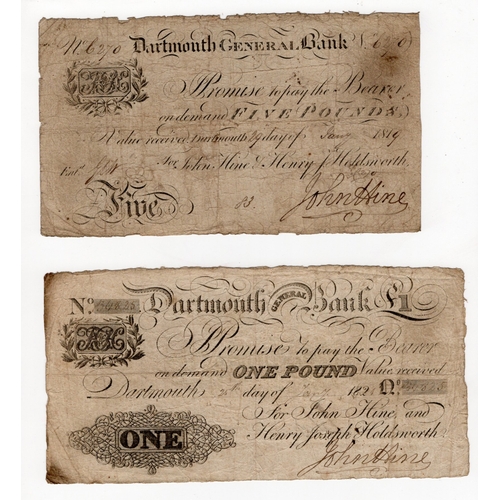 No 6270 Dartmouth General Bank No 6270
I Promise to pay the Bearer
on demand FIVE POUNDS,
Value received Dartmouth 29 day of Jany 1819
For John Hine & Henry J Holdsworth
Entd
Five 83 John Hine
No. Dartmouth GENERAL Bank £1
I Promise to pay the Bearer
on demand ONE POUND Value received
Dartmouth day of 182 No.
For John Hine, and
Henry Joseph Holdsworth.
ONE
John Hine